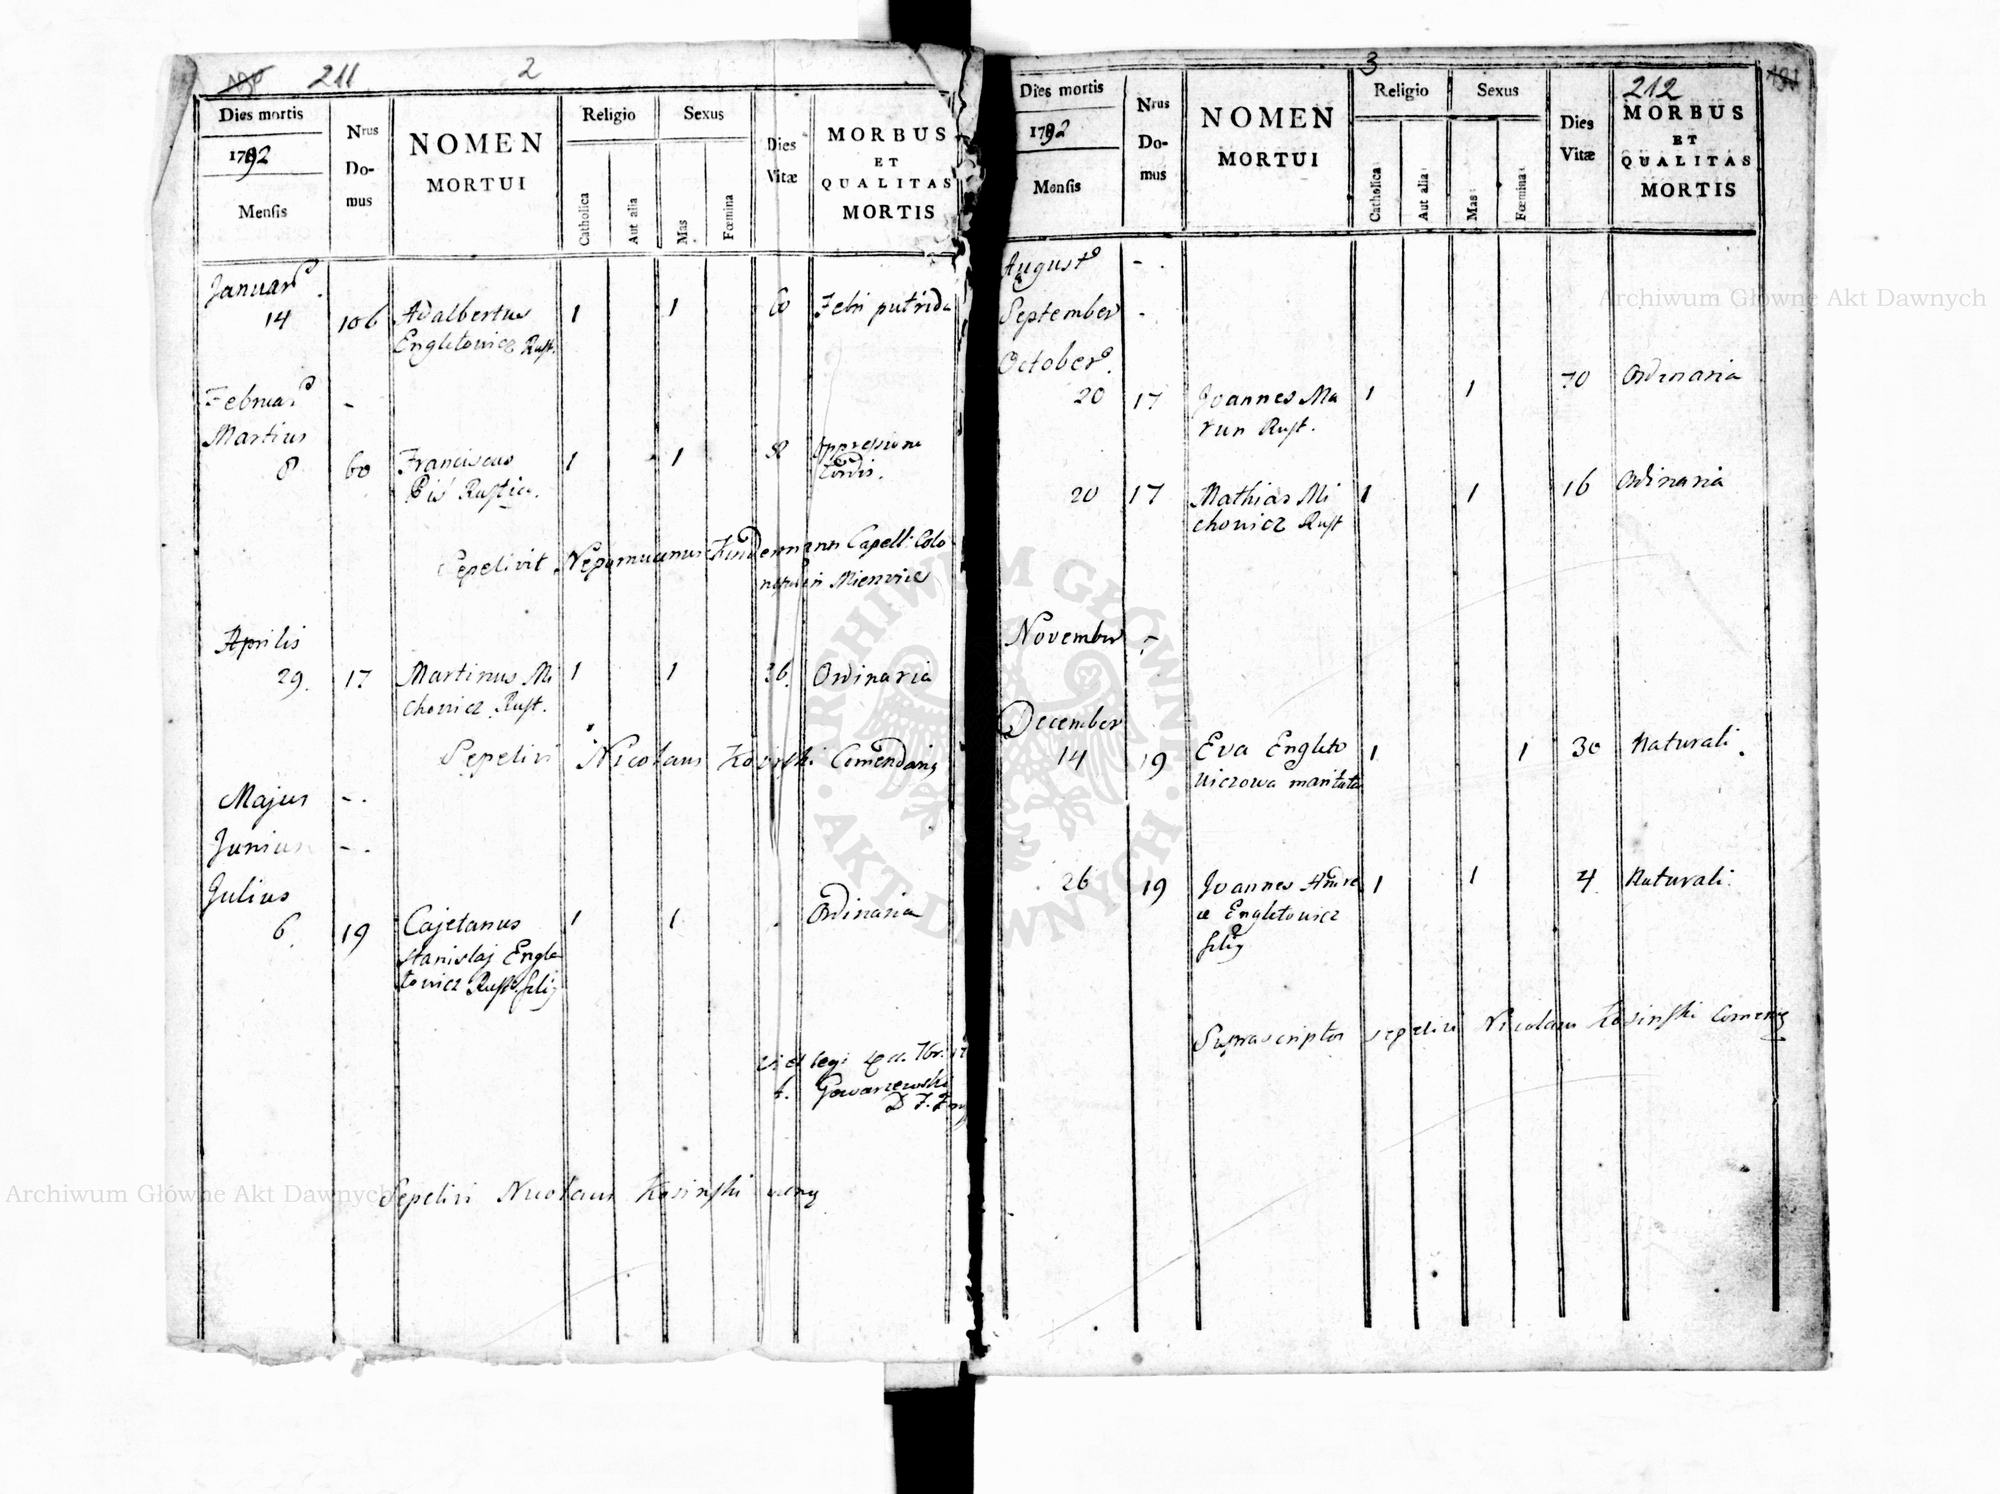 211
2
Dies mortis
1792
Mensis
Nrus
Do-
mus
NOMEN
MORTUI
Religio
Catholica
Aut alia
Sexus
Mas
Fœmina
Dies
Vitæ
MORBUS
ET
QUALITAS
MORTIS
Januar
14 106 Adalbertus 1 1 60 Febri putrida
Engletowicz Rust.
Februar -
Martius
8 60 Franciscus 1 1 58 oppressione
Pis Rustic. Cordis.
Sepelivit Nepomucenus Capell: Colo
Aprilis
29. 17 Martinus Mi 1 1 36. Ordinaria
chowicz Rust.
Sepelivi Nicolaus Kosinski Comendarig
Majus -.
Junius -.
Julius
6. 19 Cajetanus 1 1 . Ordinaria
Stanislai Engle
towicz Rust. filig
legi
Gowarzewski
Sepelivi Nicolaus Kosinski
3
212
Dies mortis
1792
Mensis
Nrus
Do-
mus
NOMEN
MORTUI
Religio
Catholica
Aut alia
Sexus
Mas
Fœmina
Dies
Vitæ
MORBUS
ET
QUALITAS
MORTIS
August -.
September -
October.
20 17 Joannes Ma 1 1 70 Ordinaria
run Rust.
20 17 Mathias Mi 1 1 16 Ordinaria
chowicz Rust
November -
December
14 19 Eva Engleto 1 1 30 Naturali.
wiczowa maritata
26 19 Joannes Andre 1 1 4 Naturali.
æ Engletowicz
filig
Suprascriptos sepelivi Nicolaus Kosinski Comendg
Archiwum Główne Akt Dawnych
Archiwum Główne Akt Dawnych
ARCHIWUM GŁÓWNE
AKT DAWNYCH